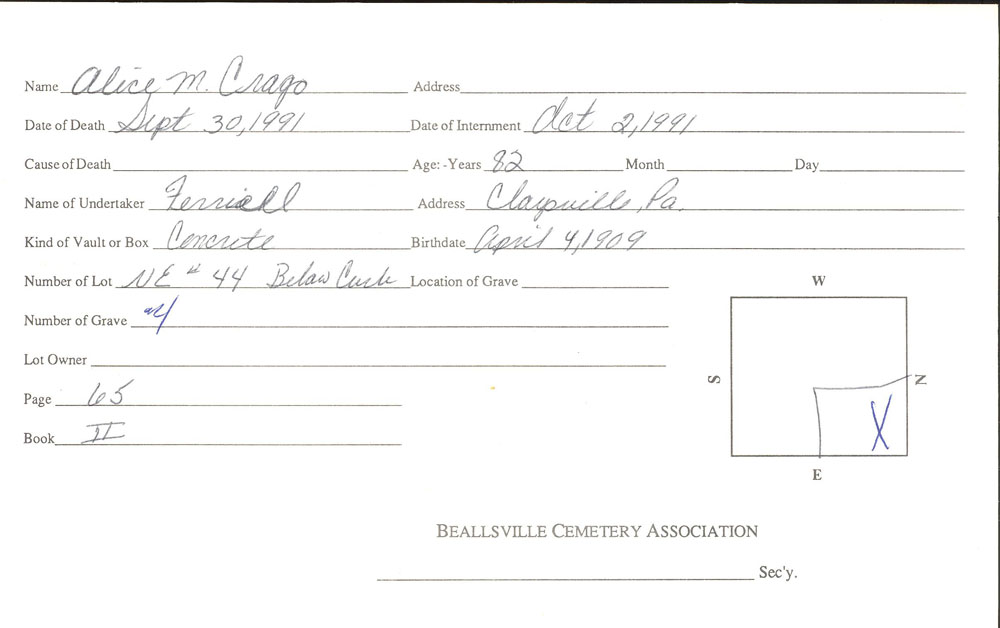 Name Alice M. Crago Address
Date of Death Sept 30, 1991 Date of Internment Oct 2, 1991
Cause of Death Age: -Years 82 Month Day
Name of Undertaker Address Claysville, Pa.
Kind of Vault or Box Concrete Birthdate April 4, 1909
Number of Lot NE # 44 Below Curb Location of Grave
W
Number of Grave
Lot Owner
S N
Page 65
X
Book II
E
BEALLSVILLE CEMETERY ASSOCIATION
Sec'y.